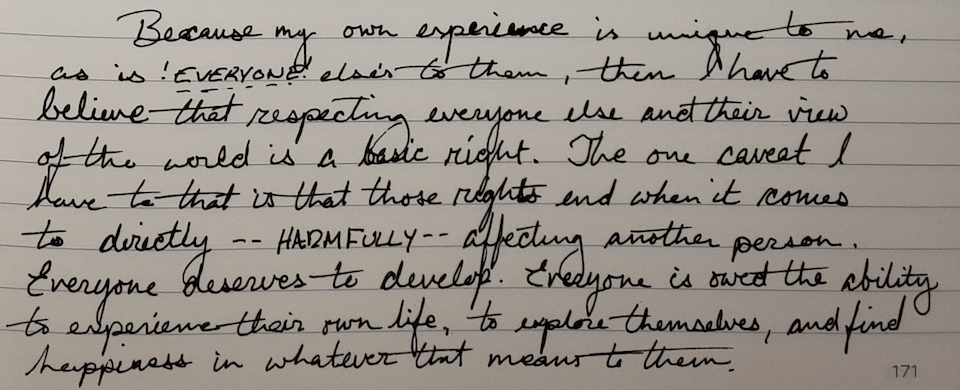 Because my own experience is unique to me,
as is !EVERYONE! else's to them, then I have to
believe that respecting everyone else and their view
of the world is a basic right. The one caveat I
have to that is that those rights end when it comes
to directly -- HARMFULLY -- affecting another person.
Everyone deserves to develop. Everyone is owed the ability
to experience their own life, to explore themselves, and find
happiness in whatever that means to them.
171